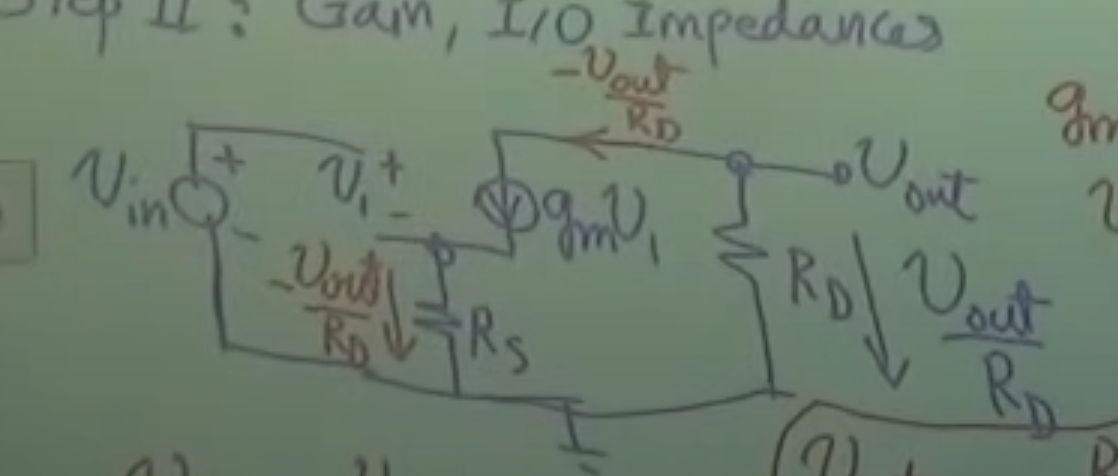 Step II : Gain, I/O Impedances
-Vout/RD
gm
Vin + -
V1 + -
gmV1
Vout
-Vout/RD
RS
RD
Vout/RD